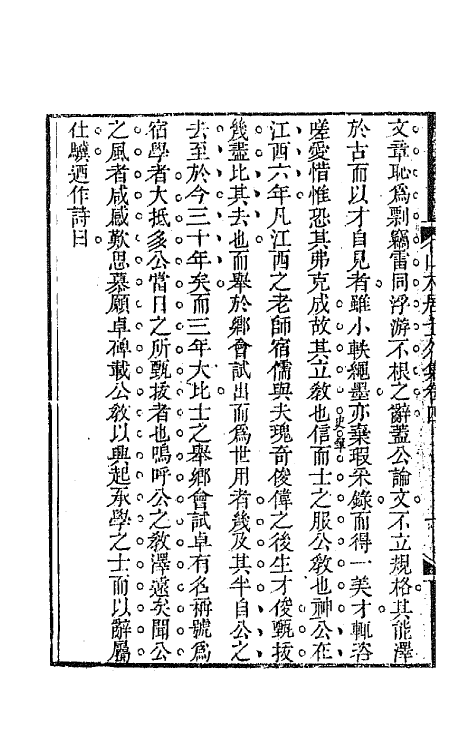 文章恥為剽竊雷同浮游不根之辭蓋公論文不立規格其能澤
於古而以才自見者雖小軼繩墨亦棄瑕采錄而得一美才輒咨
嗟愛惜惟恐其弗克成故其立教也信而士之服公教也神公在
江西六年凡江西之老師宿儒與夫瑰奇俊偉之後生才俊甄拔
幾盡比其去也而舉於鄉會試出而為世用者幾及其半自公之
去至於今三十年矣而三年大比士之舉鄉會試卓有名稱號為
宿學者大抵多公當日之所甄拔者也嗚呼公之教澤遠矣聞公
之風者咸感歎思慕願卓碑載公教以興起承學之士而以辭屬
仕驥迺作詩曰